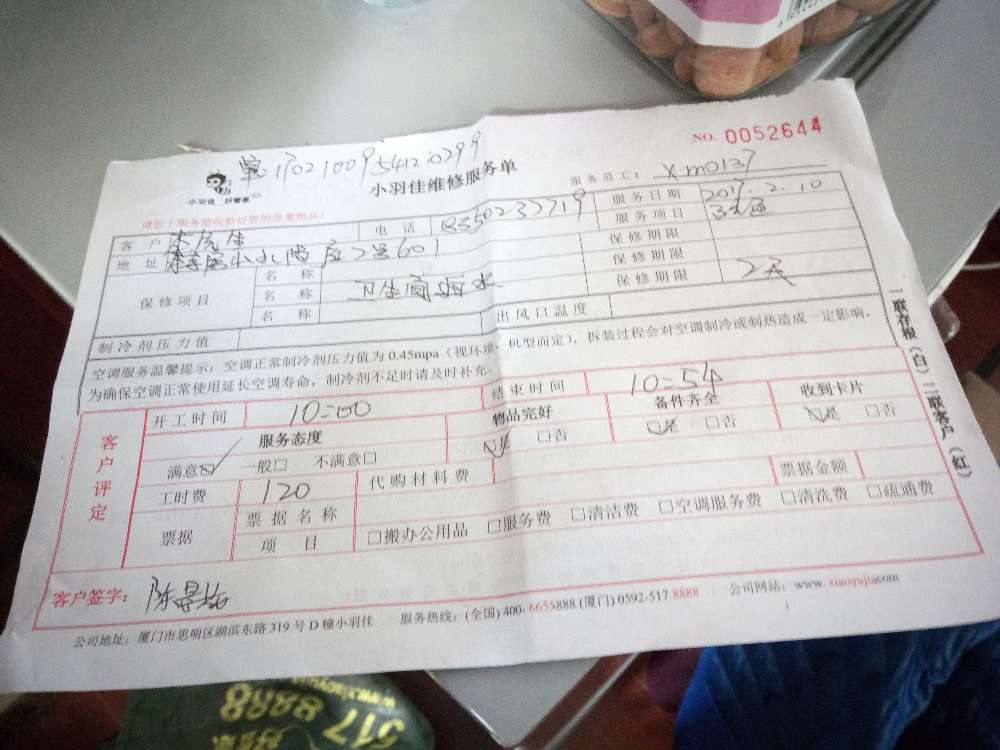 NO. 0052644
单1702100954120299
小羽佳 好管家
小羽佳维修服务单
服务员工: xm0137
请您于服务前收拾好您的贵重物品!
客户
电话
服务日期 2017.2.10
地址
601
服务项目
保修项目
名称
保修期限
名称
保修期限
名称
保修期限 2天
制冷剂压力值
出风口温度
空调服务温馨提示: 空调正常制冷剂压力值为 0.45mpa (视环境、机型而定), 拆装过程会对空调制冷或制热造成一定影响,
为确保空调正常使用延长空调寿命, 制冷剂不足时请及时补充.
客户评定
开工时间 10:00
结束时间 10:54
服务态度
物品完好
备件齐全
收到卡片
满意☑ 一般□ 不满意□
☑是 □否
☑是 □否
☑是 □否
工时费 120
代购材料费
票据金额
票据
票据名称
项目
□搬办公用品 □服务费 □清洁费 □空调服务费 □清洗费 □疏通费
客户签字:
公司地址: 厦门市思明区湖滨东路 319 号 D 幢小羽佳 服务热线: (全国) 400-6655888 (厦门) 0592-517 8888 公司网站: www.xiaoyujia.com
一联存根(白) 二联客户(红)
517
8888